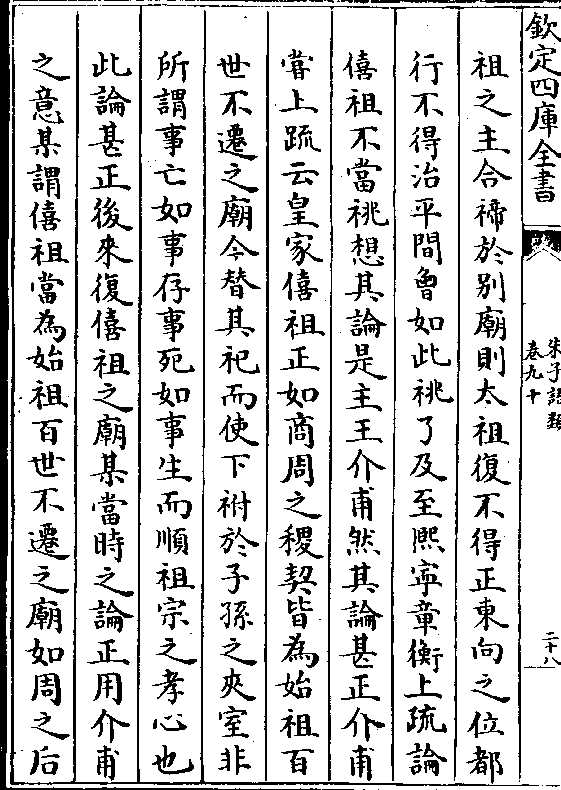 欽定四庫全書
朱子語類
卷九十
二十八
祖之主合禘於别廟則太祖復不得正東向之位都
行不得治平間曾如此祧了及至熙寧章衡上疏論
僖祖不當祧想其論是主王介甫然其論甚正介甫
嘗上疏云皇家僖祖正如商周之稷契皆為始祖百
世不遷之廟今替其祀而使下祔於子孫之夾室非
所謂事亡如事存事死如事生而順祖宗之孝心也
此論甚正後來復僖祖之廟某當時之論正用介甫
之意某謂僖祖當為始祖百世不遷之廟如周之后